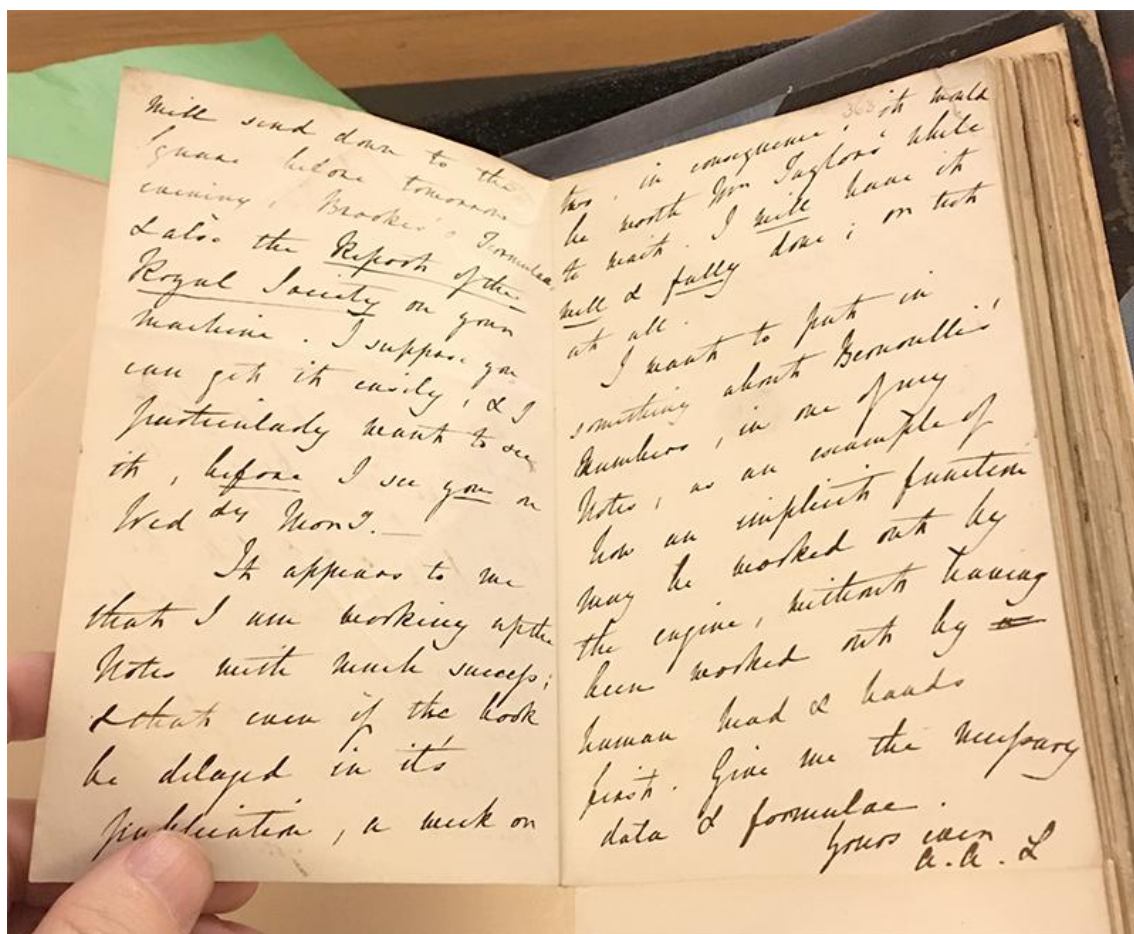 will send down to the
Square before tomorrow
evening, Brooke's Formulae
& also the Report of the
Royal Society on your
machine. I suppose you
can get it easily, & I
particularly want to see
it, before I see you on
Wed dy Morng.
It appears to me
that I am working up the
Notes with much success;
& that even if the book
be delayed in it's
publication, a week or
363
two, in consequence, it would
be worth Mr Taylor's while
to wait. I will have it
well & fully done; or not
at all.
I want to put in
something about Bernoulli's
Numbers, in one of my
Notes, as an example of
how an implicit function
may be worked out by
the engine, without having
been worked out by
human head & hands
first. Give me the necessary
data & formulae.
Yours ever
A. A. L